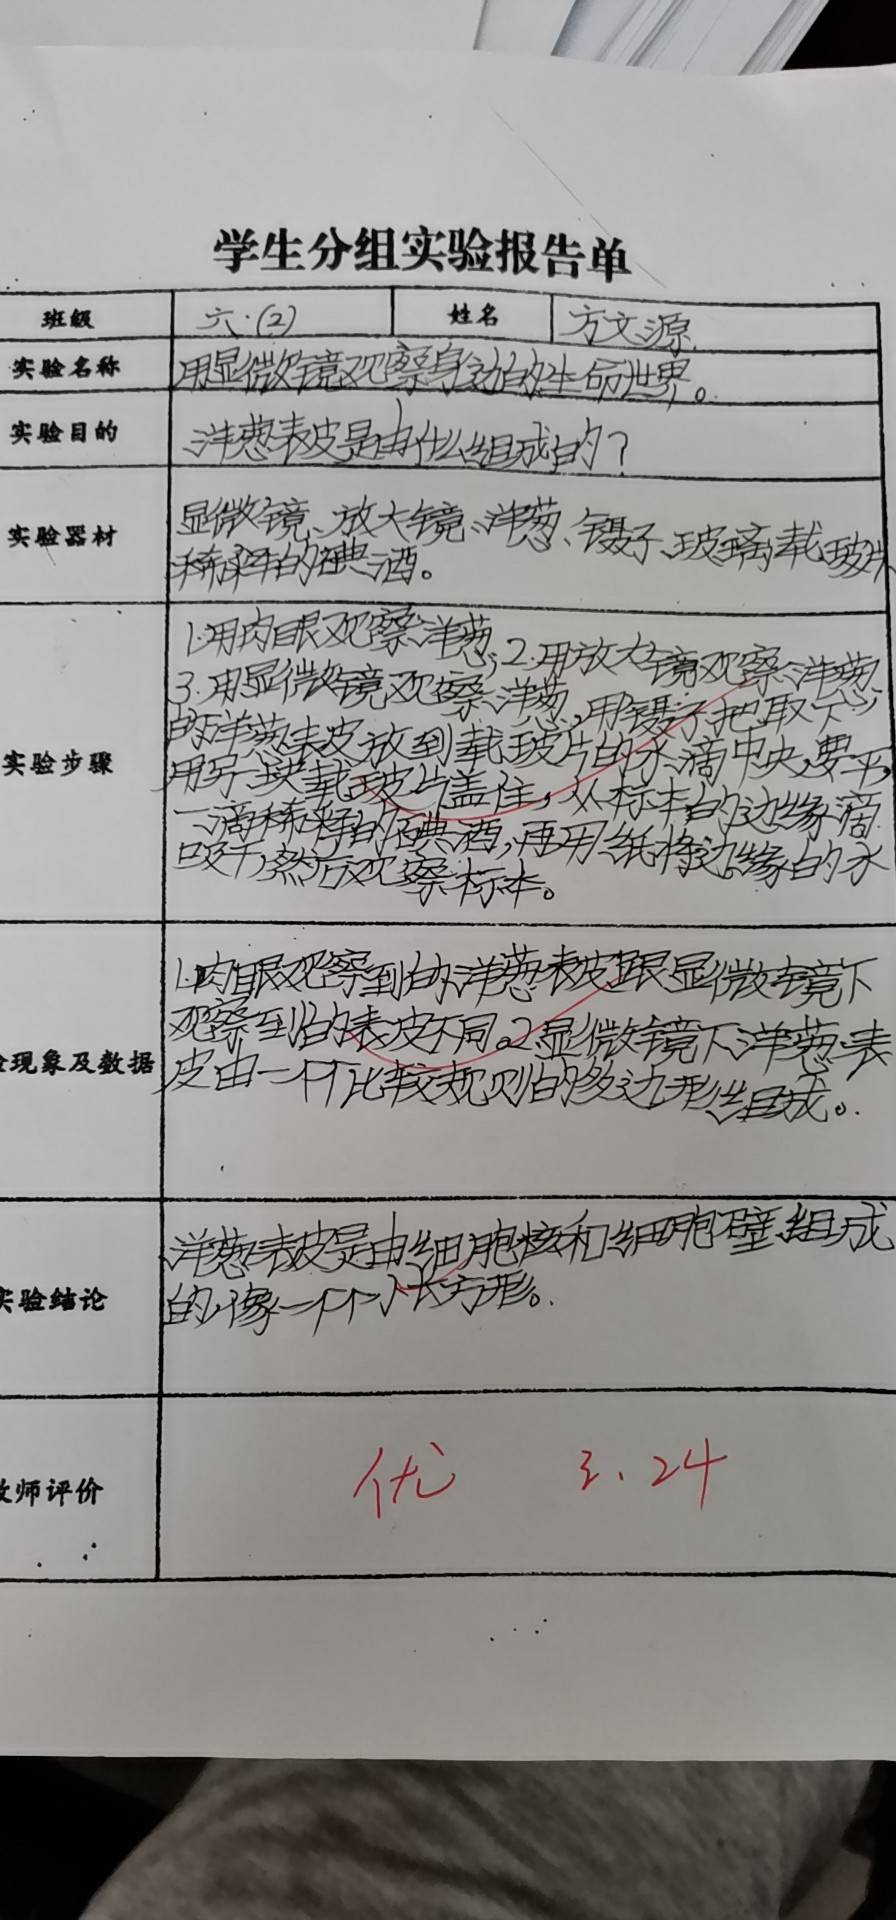 学生分组实验报告单
班级 六.(2) 姓名 方文源
实验名称 用显微镜观察身边的生命世界。
实验目的 洋葱表皮是由什么组成的？
实验器材 显微镜、放大镜、洋葱、镊子、玻璃载玻片、
稀释的碘酒。
1.用肉眼观察洋葱；2.用放大镜观察洋葱；
3.用显微镜观察洋葱，用镊子把取下
的洋葱表皮放到载玻片的水滴中央，要平，
实验步骤 用另一块载玻片盖住，从标本的边缘滴
一滴稀释的碘酒，再用纸将边缘的水
吸干，然后观察标本。
1.肉眼观察到的洋葱表皮跟显微镜下
观察到的表皮不同。2.显微镜下洋葱表
验现象及数据 皮由一个个比较规则的多边形组成。
洋葱表皮是由细胞核和细胞壁组成
实验结论 的，像一个个小长方形。
教师评价 优 3.24